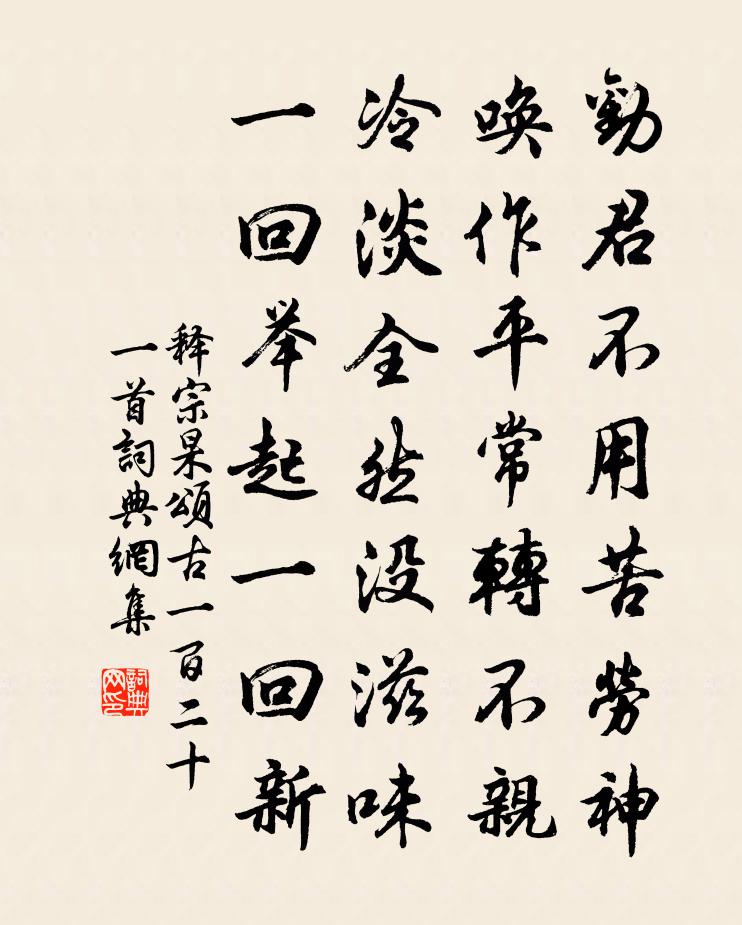 勸君不用苦勞神
喚作平常轉不親
冷淡全然没滋味
一回举起一回新
释宗杲頌古一百二十
一首詞典網集
詞典
网印